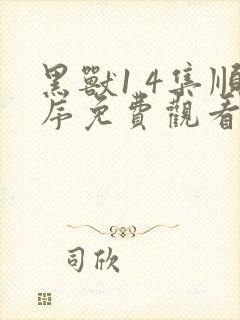 黑獸1 4集順
序免費觀看
司欣